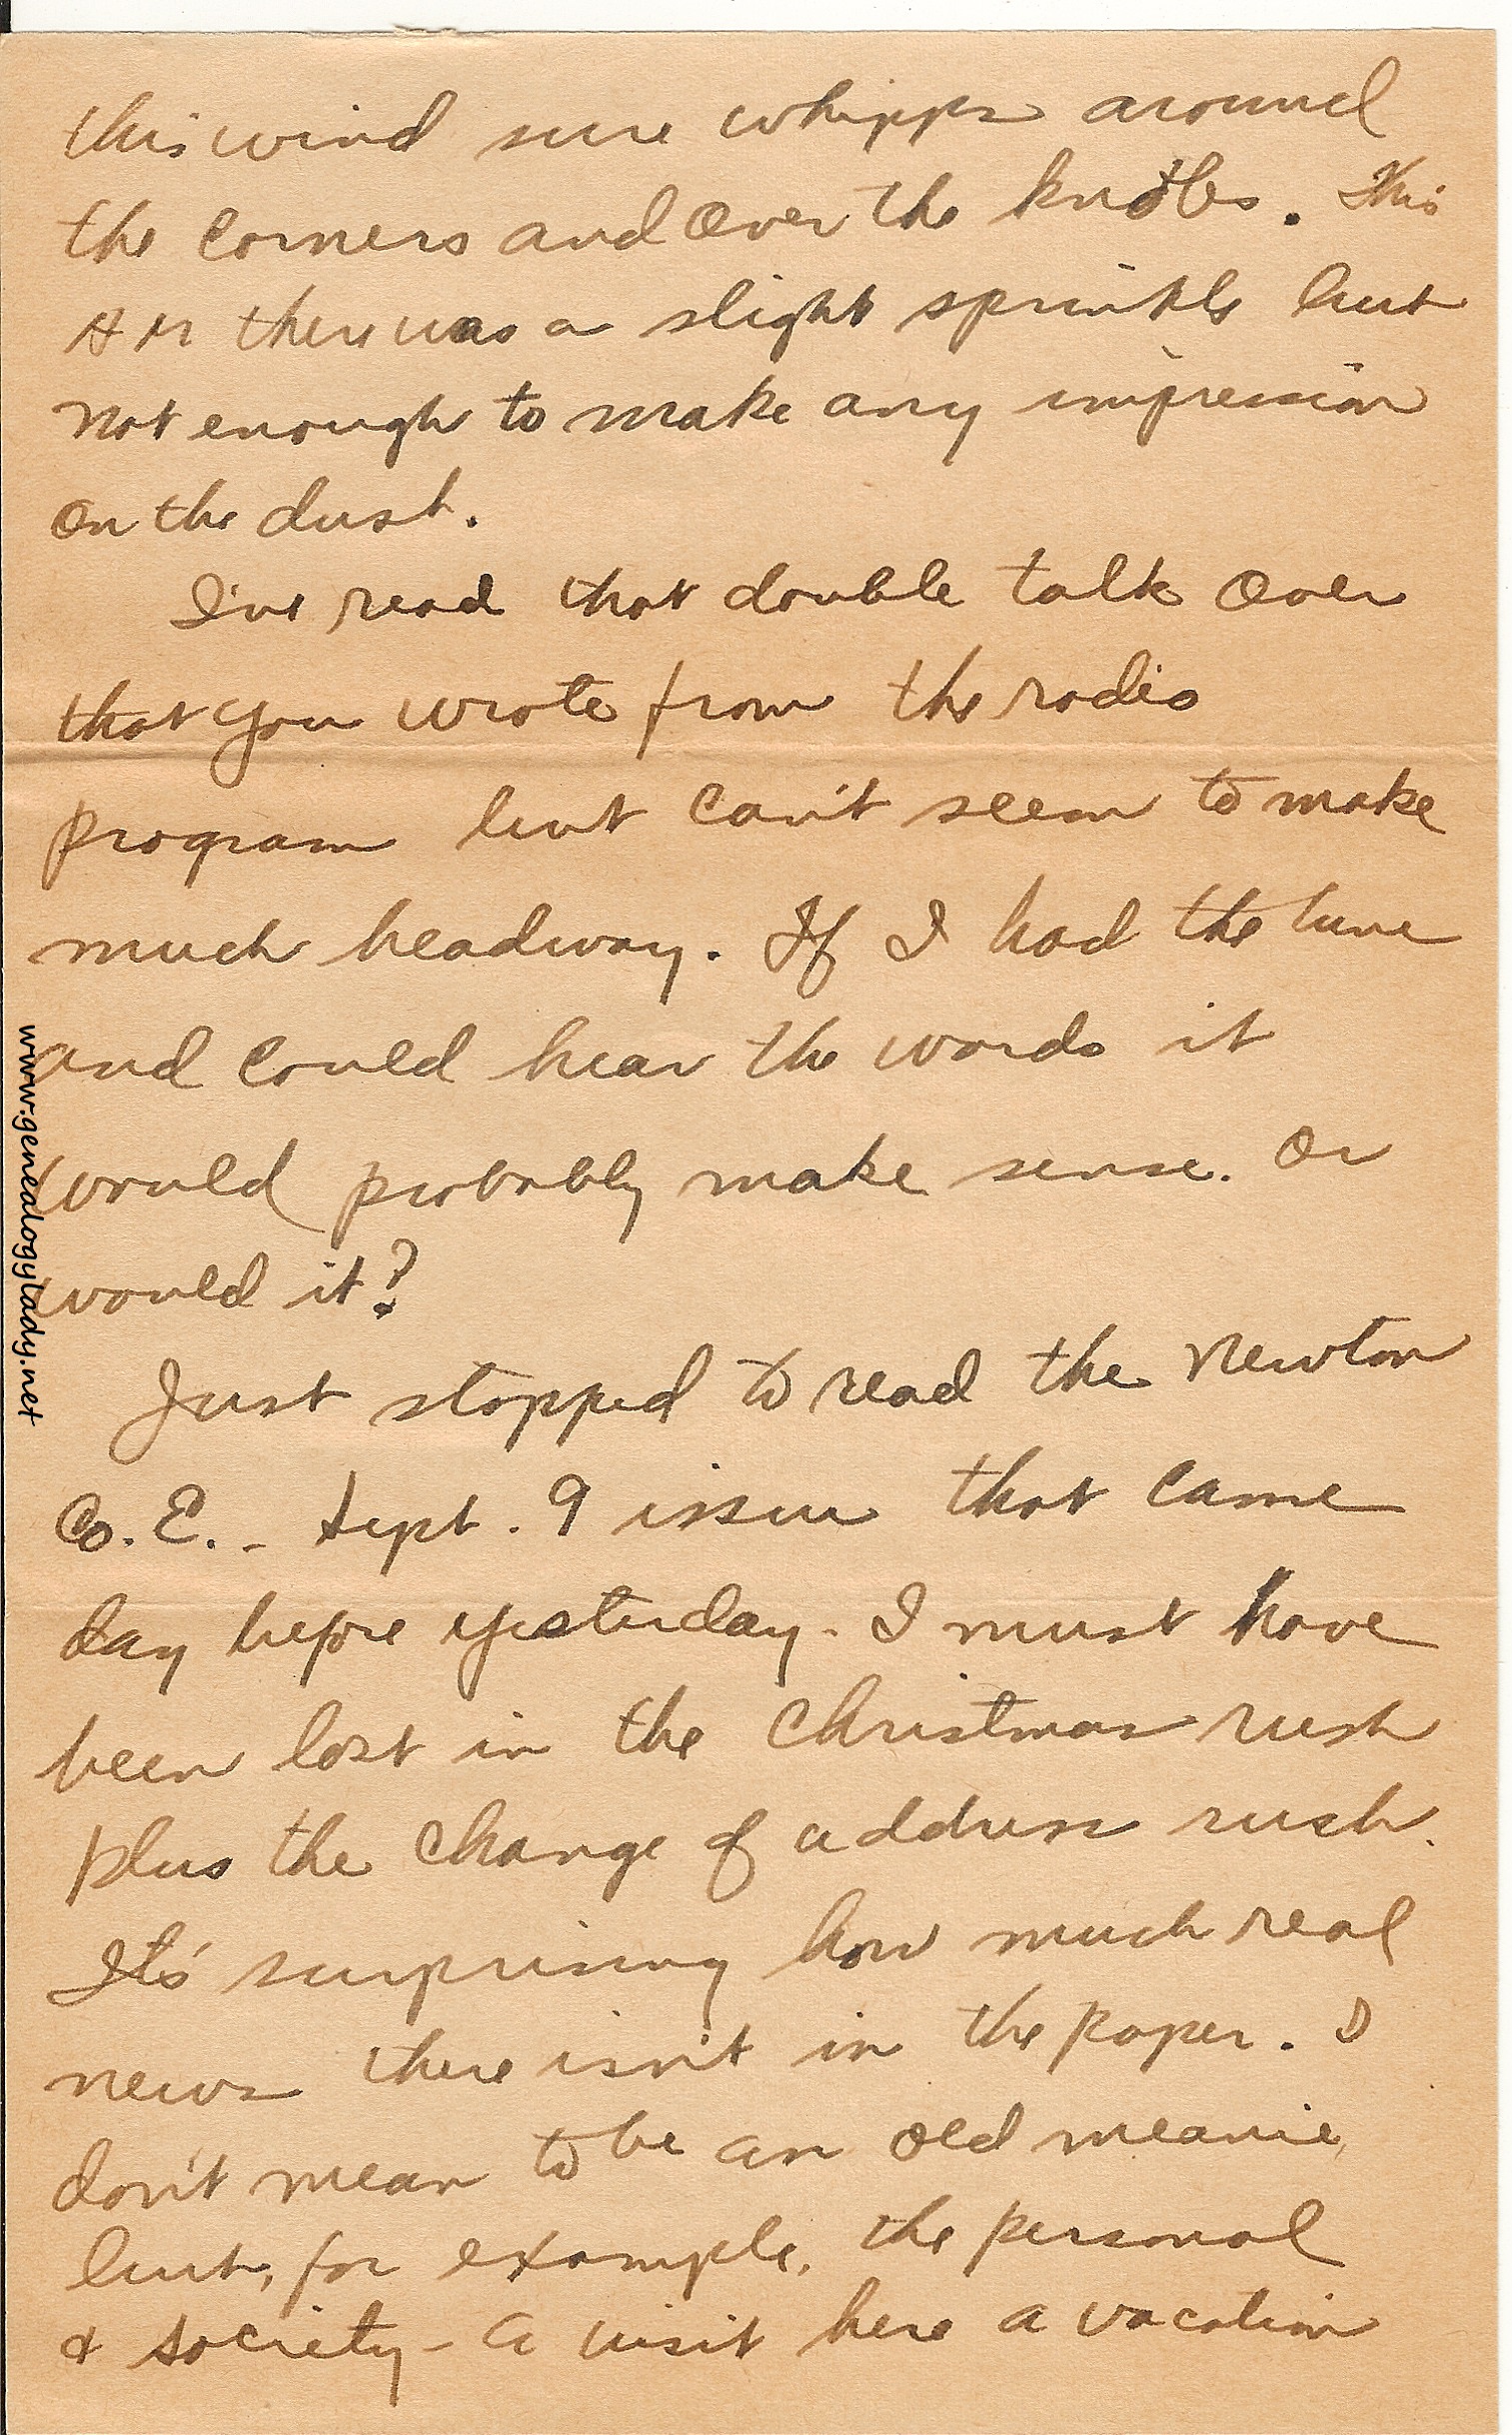 this wind sure whipps around
the corners and over the knobs. This
AM there was a slight sprinkle but
not enough to make any impression
on the dust.
I've read that double talk over
that you wrote from the radio
program but can't seem to make
much headway. If I had the tune
and could hear the words it
would probably make sense. Or
would it?
Just stopped to read the Newton
Co. E. - Sept. 9 issue that came
day before yesterday. I must have
been lost in the Christmas rush
plus the change of address rush.
It's surprising how much real
news there isn't in the paper. I
don't mean to be an old meanie,
but, for example, the personal
& society - a visit here a vacation
www.genealogylady.net